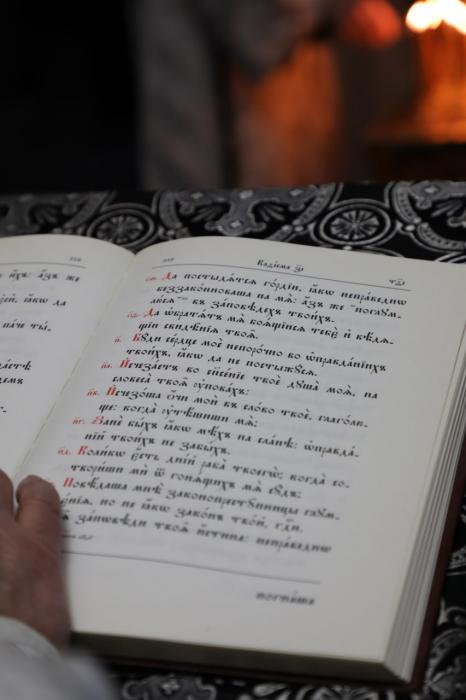 ихъ: азъ же
ей, іакѡ да
паче ты-
Каѳїсма з҃і
Да постыдѧтсѧ го́рдїи, ꙗ҆́кѡ непра́веднѡ
беззако́нноваша на мѧ̀: а҆́зъ же поглꙋм-
лю́сѧ въ за́повѣдехъ твои́хъ.
Да ѡ҆братѧ́тъ мѧ̀ боѧ́щїисѧ тебє̀ и҆ вѣ́дѧ-
щїи свидѣ́нїѧ твоѧ̑.
Бꙋ́ди се́рдце моѐ непоро́чно во ѡ҆правда́нїихъ
твои́хъ, ꙗ҆́кѡ да не постыжꙋ́сѧ.
И҆счеза́етъ во спасе́нїе твоѐ дꙋша̀ моѧ̀, на
словеса̀ твоѧ̑ ᲂу҆пова́хъ:
И҆счезо́ша ѻ҆́чи моѝ въ сло́во твоѐ, глаго́лю-
ще: когда̀ ᲂу҆тѣ́шиши мѧ̀;
Занѐ бы́хъ ꙗ҆́кѡ мѣ́хъ на сла́нѣ: ѡ҆правда́-
нїй твои́хъ не забы́хъ.
Коли́кѡ є҆́сть дні́й раба̀ твоегѡ̀; когда̀ со-
твори́ши мѝ ѿ гонѧ́щихъ мѧ̀ сꙋ́дъ;
Повѣ́даша мнѣ̀ законопрестꙋ́пницы глꙋм-
лє́нїѧ, но не ꙗ҆́кѡ зако́нъ тво́й, гдⷭ҇и.
за́пѡвѣди твоѧ̑ и҆́стина: непра́веднѡ
погна́ша